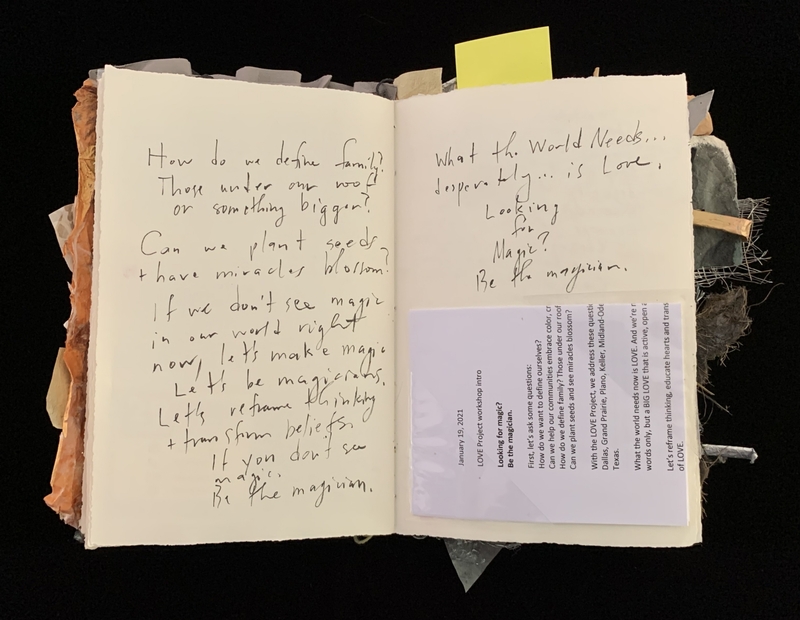 How do we define family?
Those under our roof
or something bigger?
Can we plant seeds
+ have miracles blossom?
If we don't see magic
in our world right
now, let's make magic
Let's be magicians.
Let's reframe thinking
+ transform beliefs.
If you don't see
magic.
Be the magician.
What the World Needs...
desperately... is Love.
Looking
for
Magic?
Be the magician.
January 19, 2021
LOVE Project workshop intro
Looking for magic?
Be the magician.
First, let's ask some questions:
How do we want to define ourselves?
Can we help our communities embrace color, cr
How do we define family? Those under our roof
Can we plant seeds and see miracles blossom?
With the LOVE Project, we address these questi
Dallas, Grand Prairie, Plano, Keller, Midland-Ode
Texas.
What the world needs now is LOVE. And we're n
words only, but a BIG LOVE that is active, open a
Let's reframe thinking, educate hearts and trans
of LOVE.